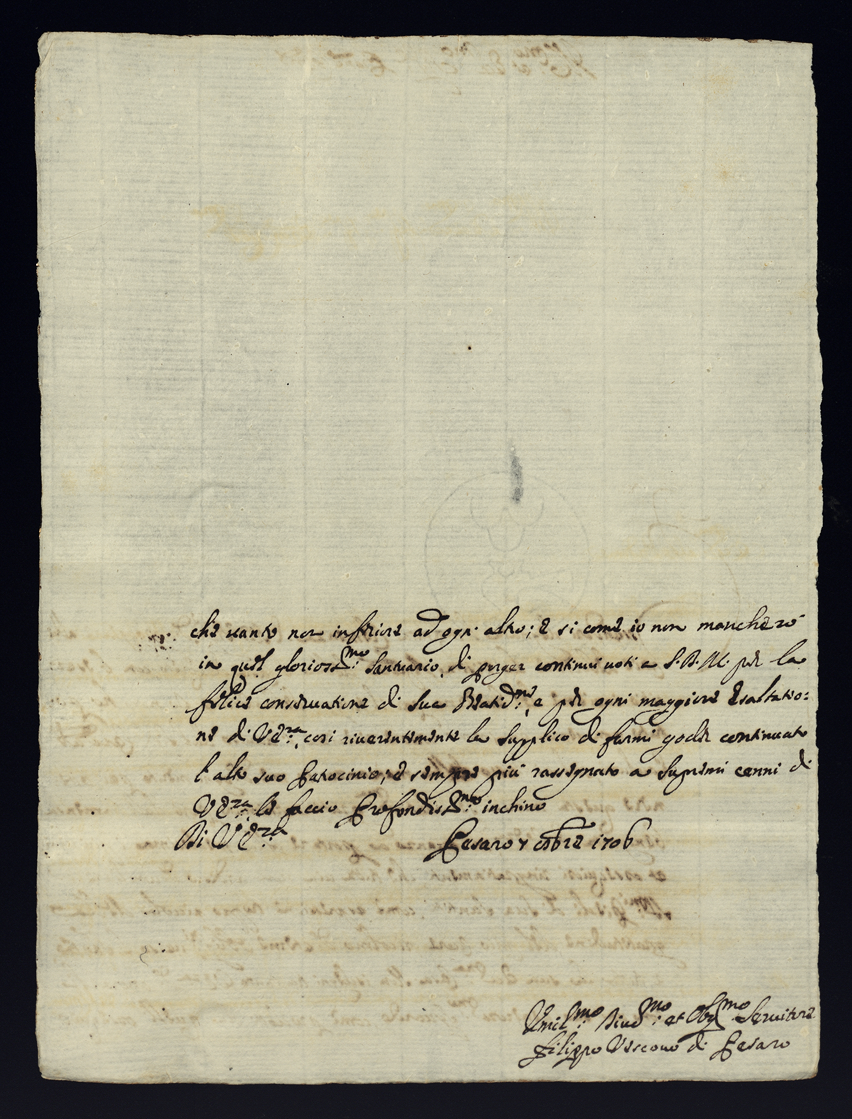 che vanto non inferiore ad ogn' altro; e si come io non mancherò
in quel glorioss.mo Santuario, di porger continui voti a S.D.M. per la
felice conservatione di Sua Beatid.ne, e per ogni maggiore Esaltatio:
ne di V. E.za, cosi riverentemente la supplico di farmi goder continuato
l'alto suo Patocinio; e sempre più rassegnato a supremi cenni di
V. E.za le faccio Profondiss.mo inchino
Di V. E.za
Pesaro 7 8bre 1706
Umil.mo Diud.mo et Obg.mo Servitore
Filippo Vescovo di Pesaro